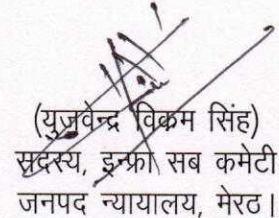 (युजवेन्द्र विक्रम सिंह)
सदस्य, इन्फ्रा सब कमेटी
जनपद न्यायालय, मेरठ।